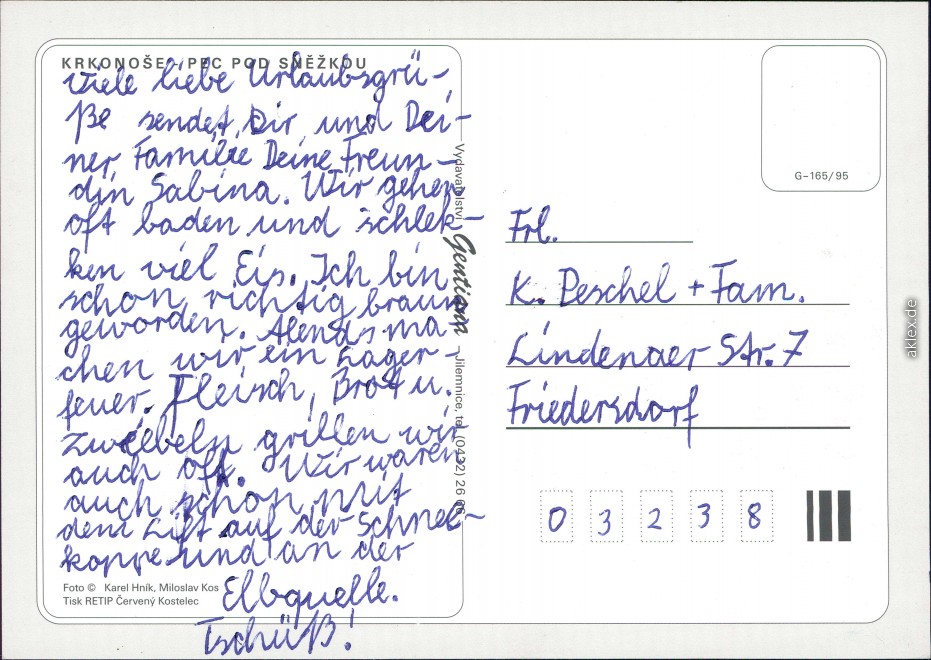 KRKONOŠE - PEC POD SNĚŽKOU
Viele liebe Urlaubsgrü-
ße sendet Dir und Dei-
ner Familie Deine Freun-
din Sabina. Wir gehen
oft baden und schlek-
ken viel Eis. Ich bin
schon richtig braun
geworden. Abends ma-
chen wir ein Lager-
feuer. Fleisch, Brot u.
Zwiebeln grillen wir
auch oft. Wir waren
auch schon mit
dem Lift auf der Schnee-
koppe und an der
Elbquelle.
Tschüß!
Foto © Karel Hník, Miloslav Kos
Tisk RETIP Červený Kostelec
Vydavatelství Gentiana – Jilemnice, tel. (0432) 26
G-165/95
Frl.
K. Peschel + Fam.
Lindenaer Str. 7
Friedersdorf
0 3 2 3 8
aklex.de